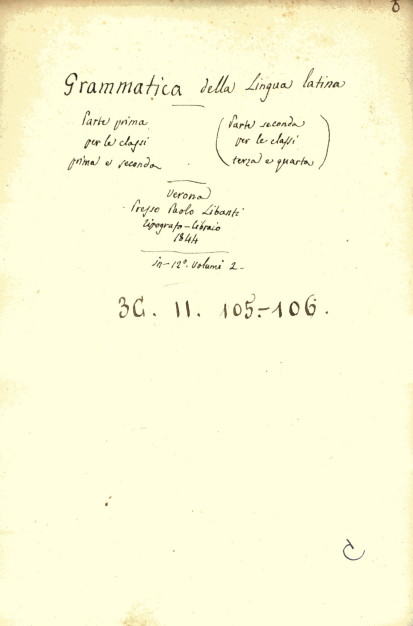 8
Grammatica della Lingua latina
Parte prima
per le classi
prima e seconda
(Parte seconda
per le classi
terza e quarta)
Verona
Presso Paolo Libanti
tipografo-libraio
1844
in-12º. Volumi 2-
3G. II. 105.-106.